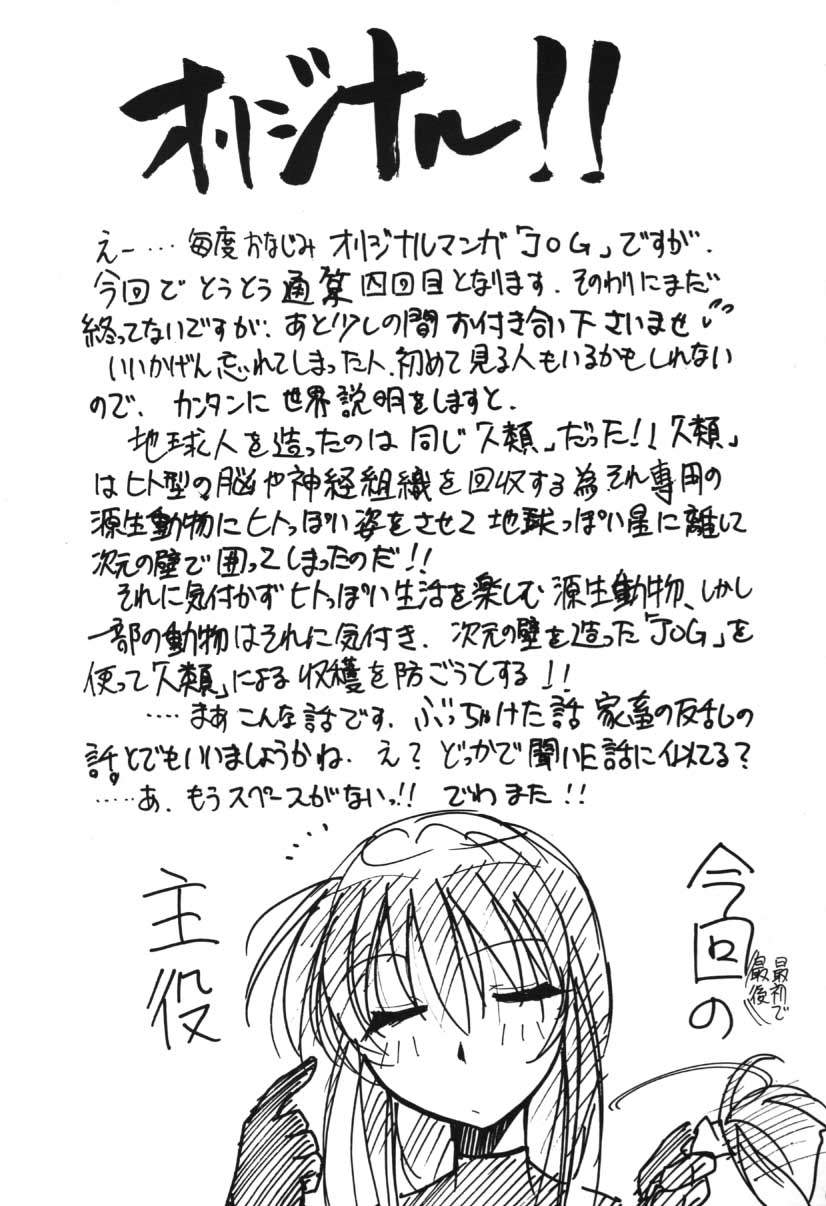 オリジナル!!
えー…毎度おなじみ オリジナルマンガ「JOG」ですが、
今回で とうとう 通算 四回目となります. そのわりにまだ
終ってないですが、あと少しの間 お付き合い下さいませ
いいかげん忘れてしまった人、初めて見る人もいるかもしれない
ので、カンタンに世界説明をしますと、
地球人を造ったのは 同じ「人類」だった!!「人類」
はヒト型の脳や神経組織を回収する為それ専用の
源生動物にヒトっぽい姿をさせて 地球っぽい星に離して
次元の壁で囲ってしまったのだ!!
それに気付かずヒトっぽい生活を楽しむ 源生動物、しかし
一部の動物はそれに気付き、次元の壁を造った「JOG」を
使って「人類」による 収穫を防ごうとする!!
…‥まあこんな話です、ぶっちゃけた話 家畜の反乱の
話とでもいいましょうかね. え?どっかで聞いた話に似てる?
……あ、もうスペースがないっ!! でわまた!!
今回の
最初で
最後
主役